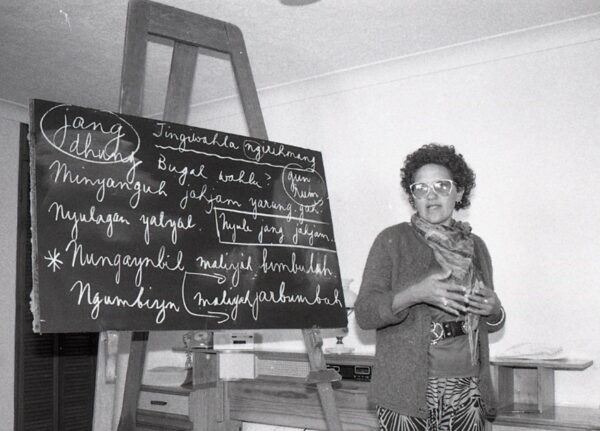 jang dhung
Jingiwahla ngirihmang
Bugal wahlu? gun num
Minyanguh jahjam yarung gah.
Nyulagan yabyal. Nyule jang jahjam.
* Nungaynbil maliyah bumbulah.
Ngumbiyn maliyah jarbumbah